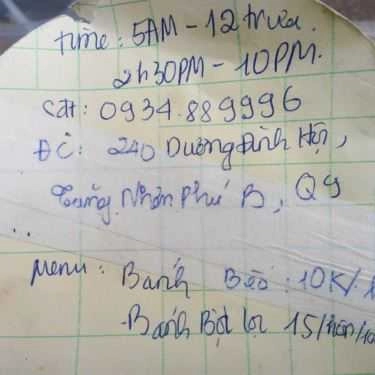 time: 5AM - 12 trưa.
2h30PM - 10PM.
Sđt: 0934.889996
ĐC: 240 Dương Đình Hội,
Tăng Nhơn Phú B, Q9
Menu: Bánh Bèo: 10K/
-Bánh Bột lọc 15/